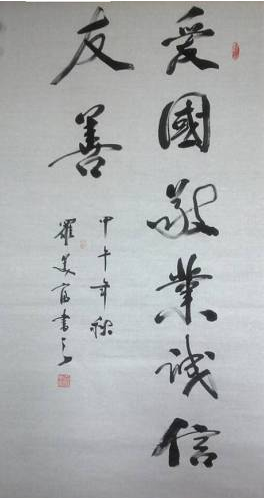 愛國敬業誠信
友善
甲午年秋
羅美富書